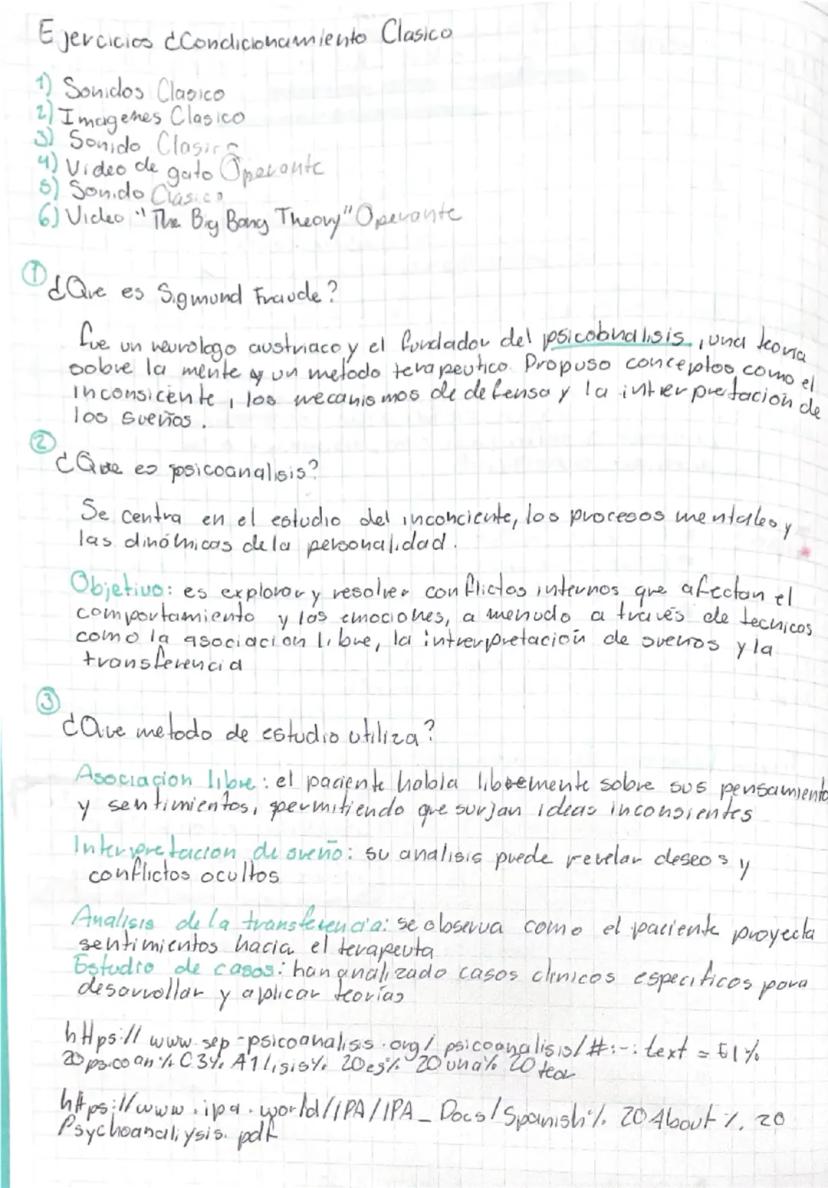 Ejercicios ¿Condicionamiento Clasico
1) Sonidos Clasico
2) Imagenes Clasico
3) Sonido Clasico
4) Video de gato Operante
5) Sonido Clasico
6) Video "The Big Bang Theory" Operante
① ¿Que es Sigmund Fraude?
fue un neurologo austriaco y el fundador del psicobnalisis, una teoria
sobre la mente y un metodo terapeutico. Propuso conceptos como el
inconsicente, los mecanismos de defensa y la intrerpretacion de
los sueños.
② ¿Que es psicoanalisis?
Se centra en el estudio del inconciente, los procesos mentales y
las dinámicas de la personalidad.
Objetivo: es explorar y resolver conflictos internos que afectan el
comportamiento y las emociones, a menudo a través de tecnicos
como la asociacion libre, la intrerpretación de sueños y la
transferencia
③ ¿Que metodo de estudio utiliza?
Asociacion libre: el paciente habla libremente sobre sus pensamiento
y sentimientos, permitiendo que surjan ideas inconsientes
Interpretacion de sueño: su analisis puede revelar deseos y
conflictos ocultos
Analisis de la transferencia: se observa como el paciente proyecta
sentimientos hacia el terapeuta
Estudio de casos: han analizado casos clinicos especificos para
desarrollar y aplicar teorías
https://www.sep-psicoanalisis.org/psicoanalisis/#:~:text=El%
20psicoan%C3%A1lisis%20es%20una%20teor
https://www.ipa.world/IPA/IPA_Docs/Spanish%20About%20
Psychoanaliysis.pdf